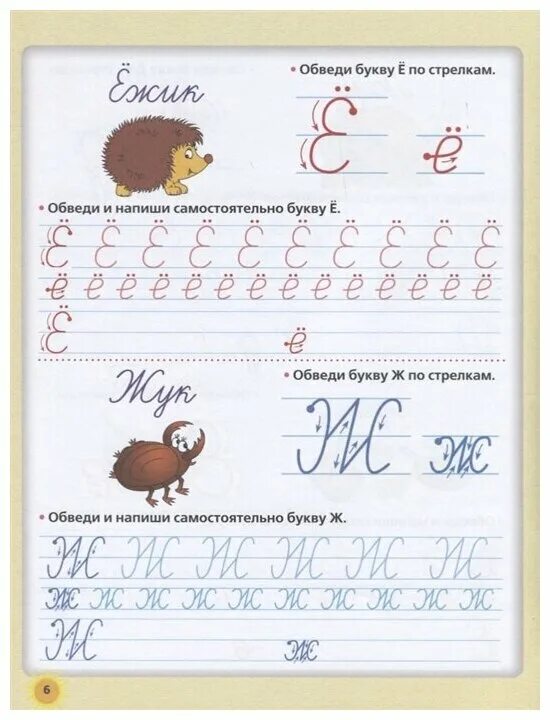 Ёжик
• Обведи букву Ё по стрелкам.
Ё ё
• Обведи и напиши самостоятельно букву Ё.
Ё Ё Ё Ё Ё Ё Ё Ё Ё Ё
ё ё ё ё ё ё ё ё ё ё ё ё ё ё
Ё ё
Жук
• Обведи букву Ж по стрелкам.
Ж ж
• Обведи и напиши самостоятельно букву Ж.
Ж Ж Ж Ж Ж Ж
ж ж ж ж ж ж ж ж ж ж
Ж ж
6